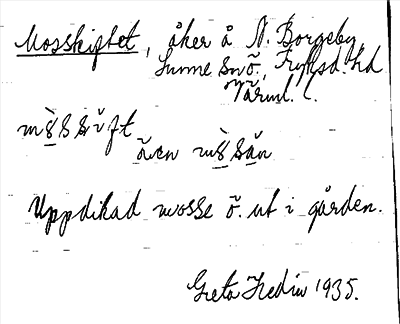 Mosskiftet, åker å N. Borgeby
Sunne snö. Fryksd. hd
Värml. l.
mòssìft
även mòssan
Uppdikad mosse ö. ut i gården.
Greta Hedin 1935.